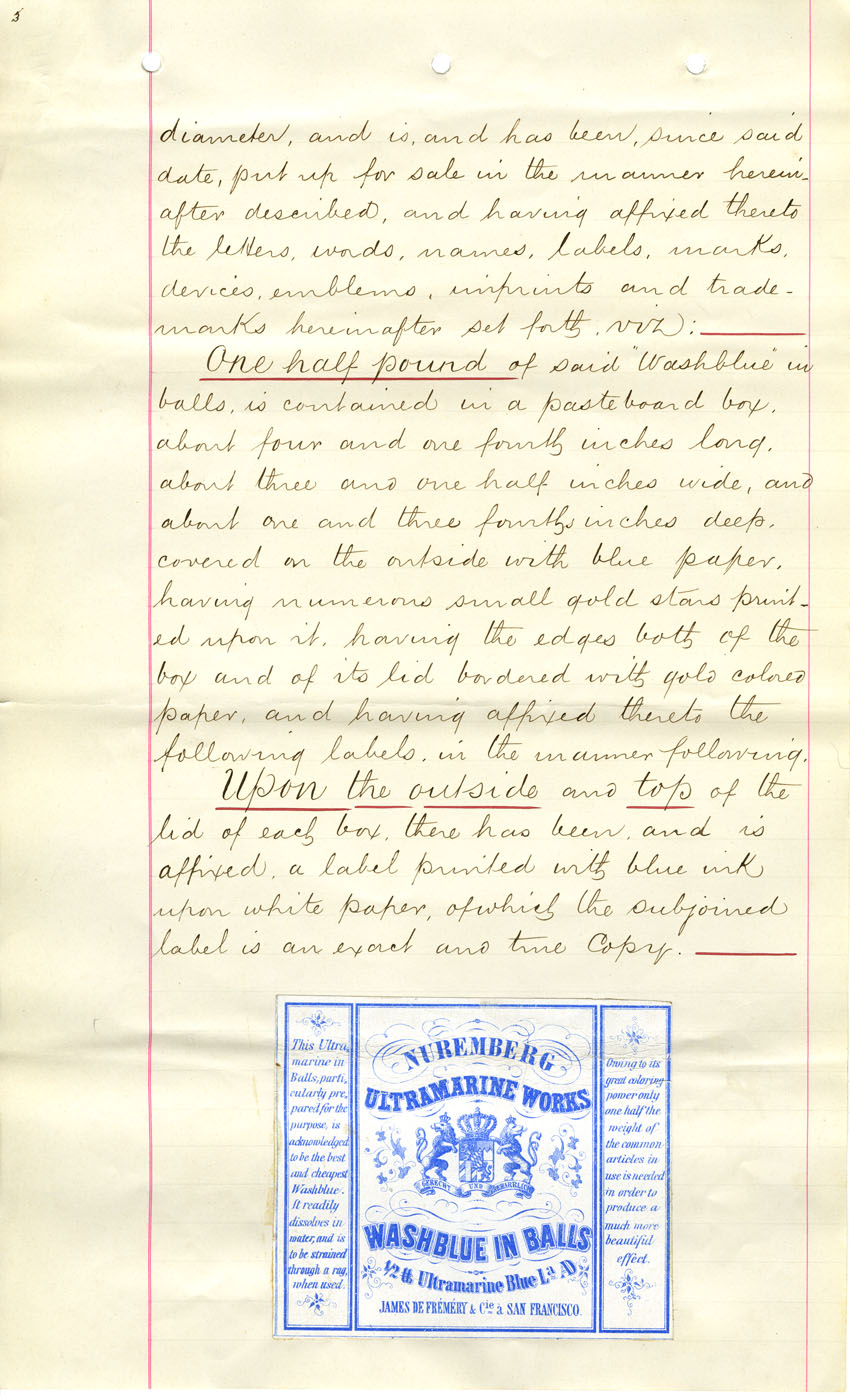 3
diameter, and is, and has been, since said
date, put up for sale in the manner herein-
after described, and having affixed thereto
the letters, words, names, labels, marks,
devices, emblems, imprints and trade-
marks hereinafter set forth, viz:
One half pound of said "Washblue" in
balls, is contained in a pasteboard box,
about four and one fourth inches long,
about three and one half inches wide, and
about one and three fourths inches deep,
covered on the outside with blue paper,
having numerous small gold stars print-
ed upon it, having the edges both of the
box and of its lid bordered with gold colored
paper, and having affixed thereto the
following labels, in the manner following.
Upon the outside and top of the
lid of each box, there has been, and is
affixed, a label printed with blue ink
upon white paper, of which the subjoined
label is an exact and true Copy.
This Ultra,
marine in
Balls, parti,
cularly pre,
pared for the
purpose, is
acknowledged
to be the best
and cheapest
Washblue.
It readily
dissolves in
water, and is
to be strained
through a rag,
when used.
NUREMBERG
ULTRAMARINE WORKS
GERECHT UND BEHARRLICH
WASHBLUE IN BALLS
1/2 ℔ Ultramarine Blue La AD
JAMES DE FRÉMÉRY & Cie à SAN FRANCISCO.
Owing to its
great coloring
power only
one half the
weight of
the common
articles in
use is needed
in order to
produce a
much more
beautiful
effect.